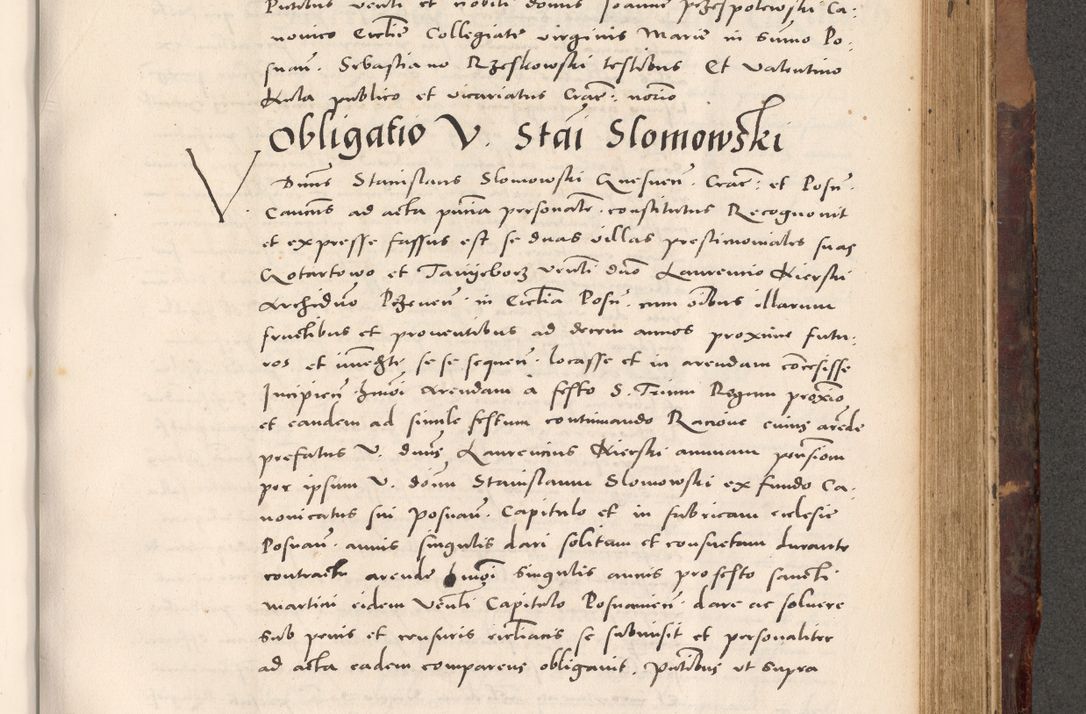 Pntibus venli et nobili domis Joanne Przespolewski Ca:
nonico Ecclie Collegiate virginis Marie in Sumo Po:
snan. Sebastiano Rzeskowski testibus Et Valentino
Kula publico et vicariatus Crac: norio
Obligatio V. Stai Slomowski
V Dnus Stanislaus Slomowski Gnesnen. Crac: et Posn.
Cancus ad acta pntia personalr constitutus Recognouit
et expresse fassus est se duas villas prestimoniales suas
Gotartowo et venli dno Laurencio Kierski
Archidno Pczeuen. in Ecclia Posn. cum oibus illarum
fructibus et prouentibus ad decem annos proxime futu:
ros et imedte se se sequen. locasse et in arendam cocesisse
Incipien hmoi arendam a festo S. Trium Regum proxio
et eandem ad simile festum continuando Racione cuius arede
prefatus V. dnus Laurencius Kierski annuam pensiom
per ipsum V. donu Stanislaum Slomowski ex fundo Ca:
nonicatus sui Posnan. Capitulo et in fabricam ecclesie
Posnan. annis singulis dari solitam et consuetam durante
contractu arende hmoi singulis annis pro festo sancti
martini eidem Venli Capitulo Posnanien. dare ac soluere
Sub penis et censuris eccliacis se submisit et personaliter
ad acta eadem comparens obligauit. Pntibus ut supra